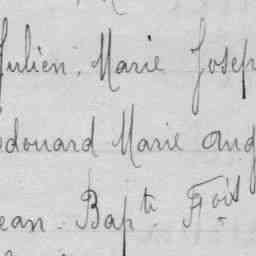 Julien, Marie Josep
Edouard Marie Aug
ean-Bapte Fois